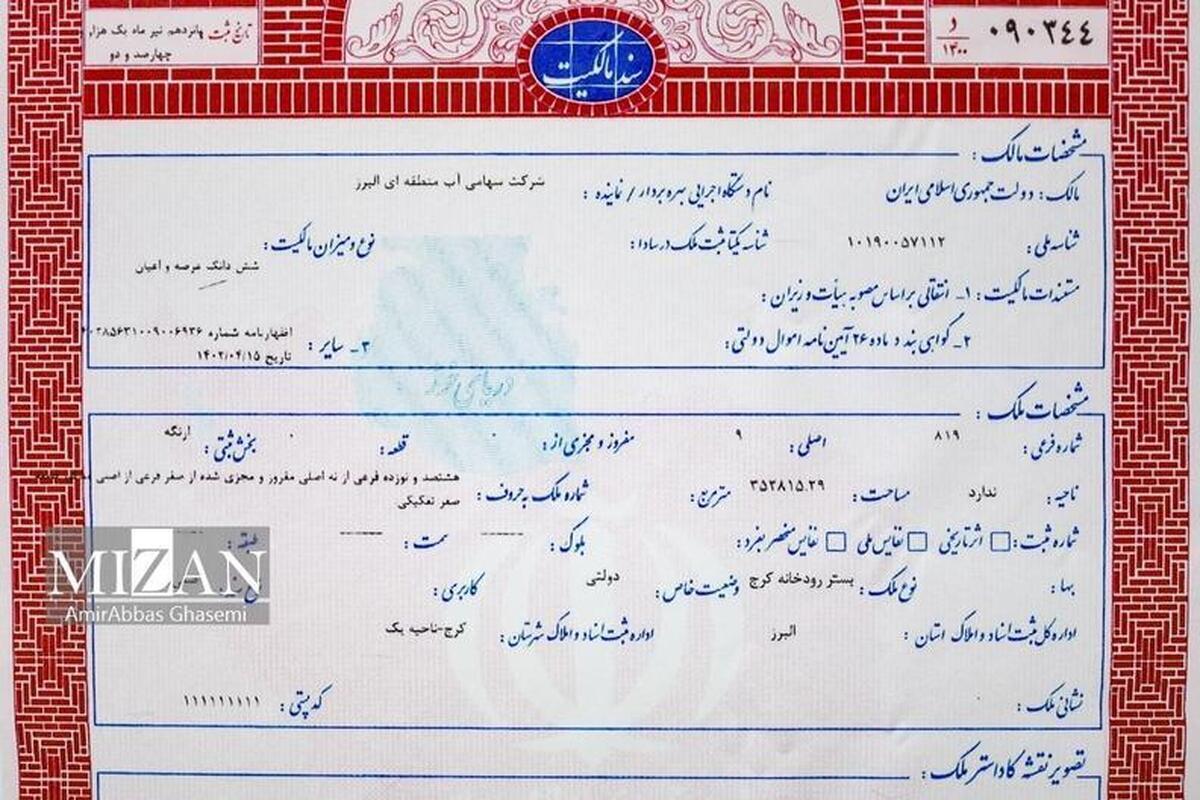 ۰۹۰۳۴۴
د
۱۴۰۰
سند مالکیت
تاریخ ثبت پانزدهم تیر ماه یک هزار
چهارصد و دو
مشخصات مالک :
مالک : دولت جمهوری اسلامی ایران نام دستگاه اجرایی بهره بردار / نماینده : شرکت سهامی آب منطقه ای البرز
شناسه ملی : ۱۰۱۹۰۰۵۷۱۱۲ شناسه یکتا ثبت ملک در سادا : نوع و میزان مالکیت :
شش دانگ عرصه و اعیان
مستندات مالکیت : ۱ـ انتقالی براساس مصوبه هیأت وزیران :
۲ـ گواهی بند د ماده ۲۶ آیین نامه اموال دولتی : ۳ـ سایر : اظهارنامه شماره
تاریخ ۱۴۰۲/۰۴/۱۵
دریای نور
مشخصات ملک :
شماره فرعی : ۸۱۹ اصلی : ۹ مفروز و مجزی از : ۰ قطعه : ۰ بخش ثبتی : ارنگه
ناحیه : ندارد مساحت : ۳۵۲۸۱۵.۲۹ مترمربع : شماره ملک به حروف : هشتصد و نوزده فرعی از نه اصلی مفروز و مجزی شده از صفر فرعی از اصلی
صفر تفکیکی
شماره ثبت : اثر تاریخی نفایس ملی نفایس منحصر بفرد : بلوک : ----- سمت : ----- طبقه :
بها : نوع ملک : بستر رودخانه کرج وضعیت خاص : دولتی کاربری :
اداره کل ثبت اسناد و املاک استان : البرز اداره ثبت اسناد و املاک شهرستان : کرج-ناحیه یک
نشانی ملک : کد پستی : ۱۱۱۱۱۱۱۱۱۱
تصویر نقشه کاداستر ملک :
MIZAN
AmirAbbas Ghasemi